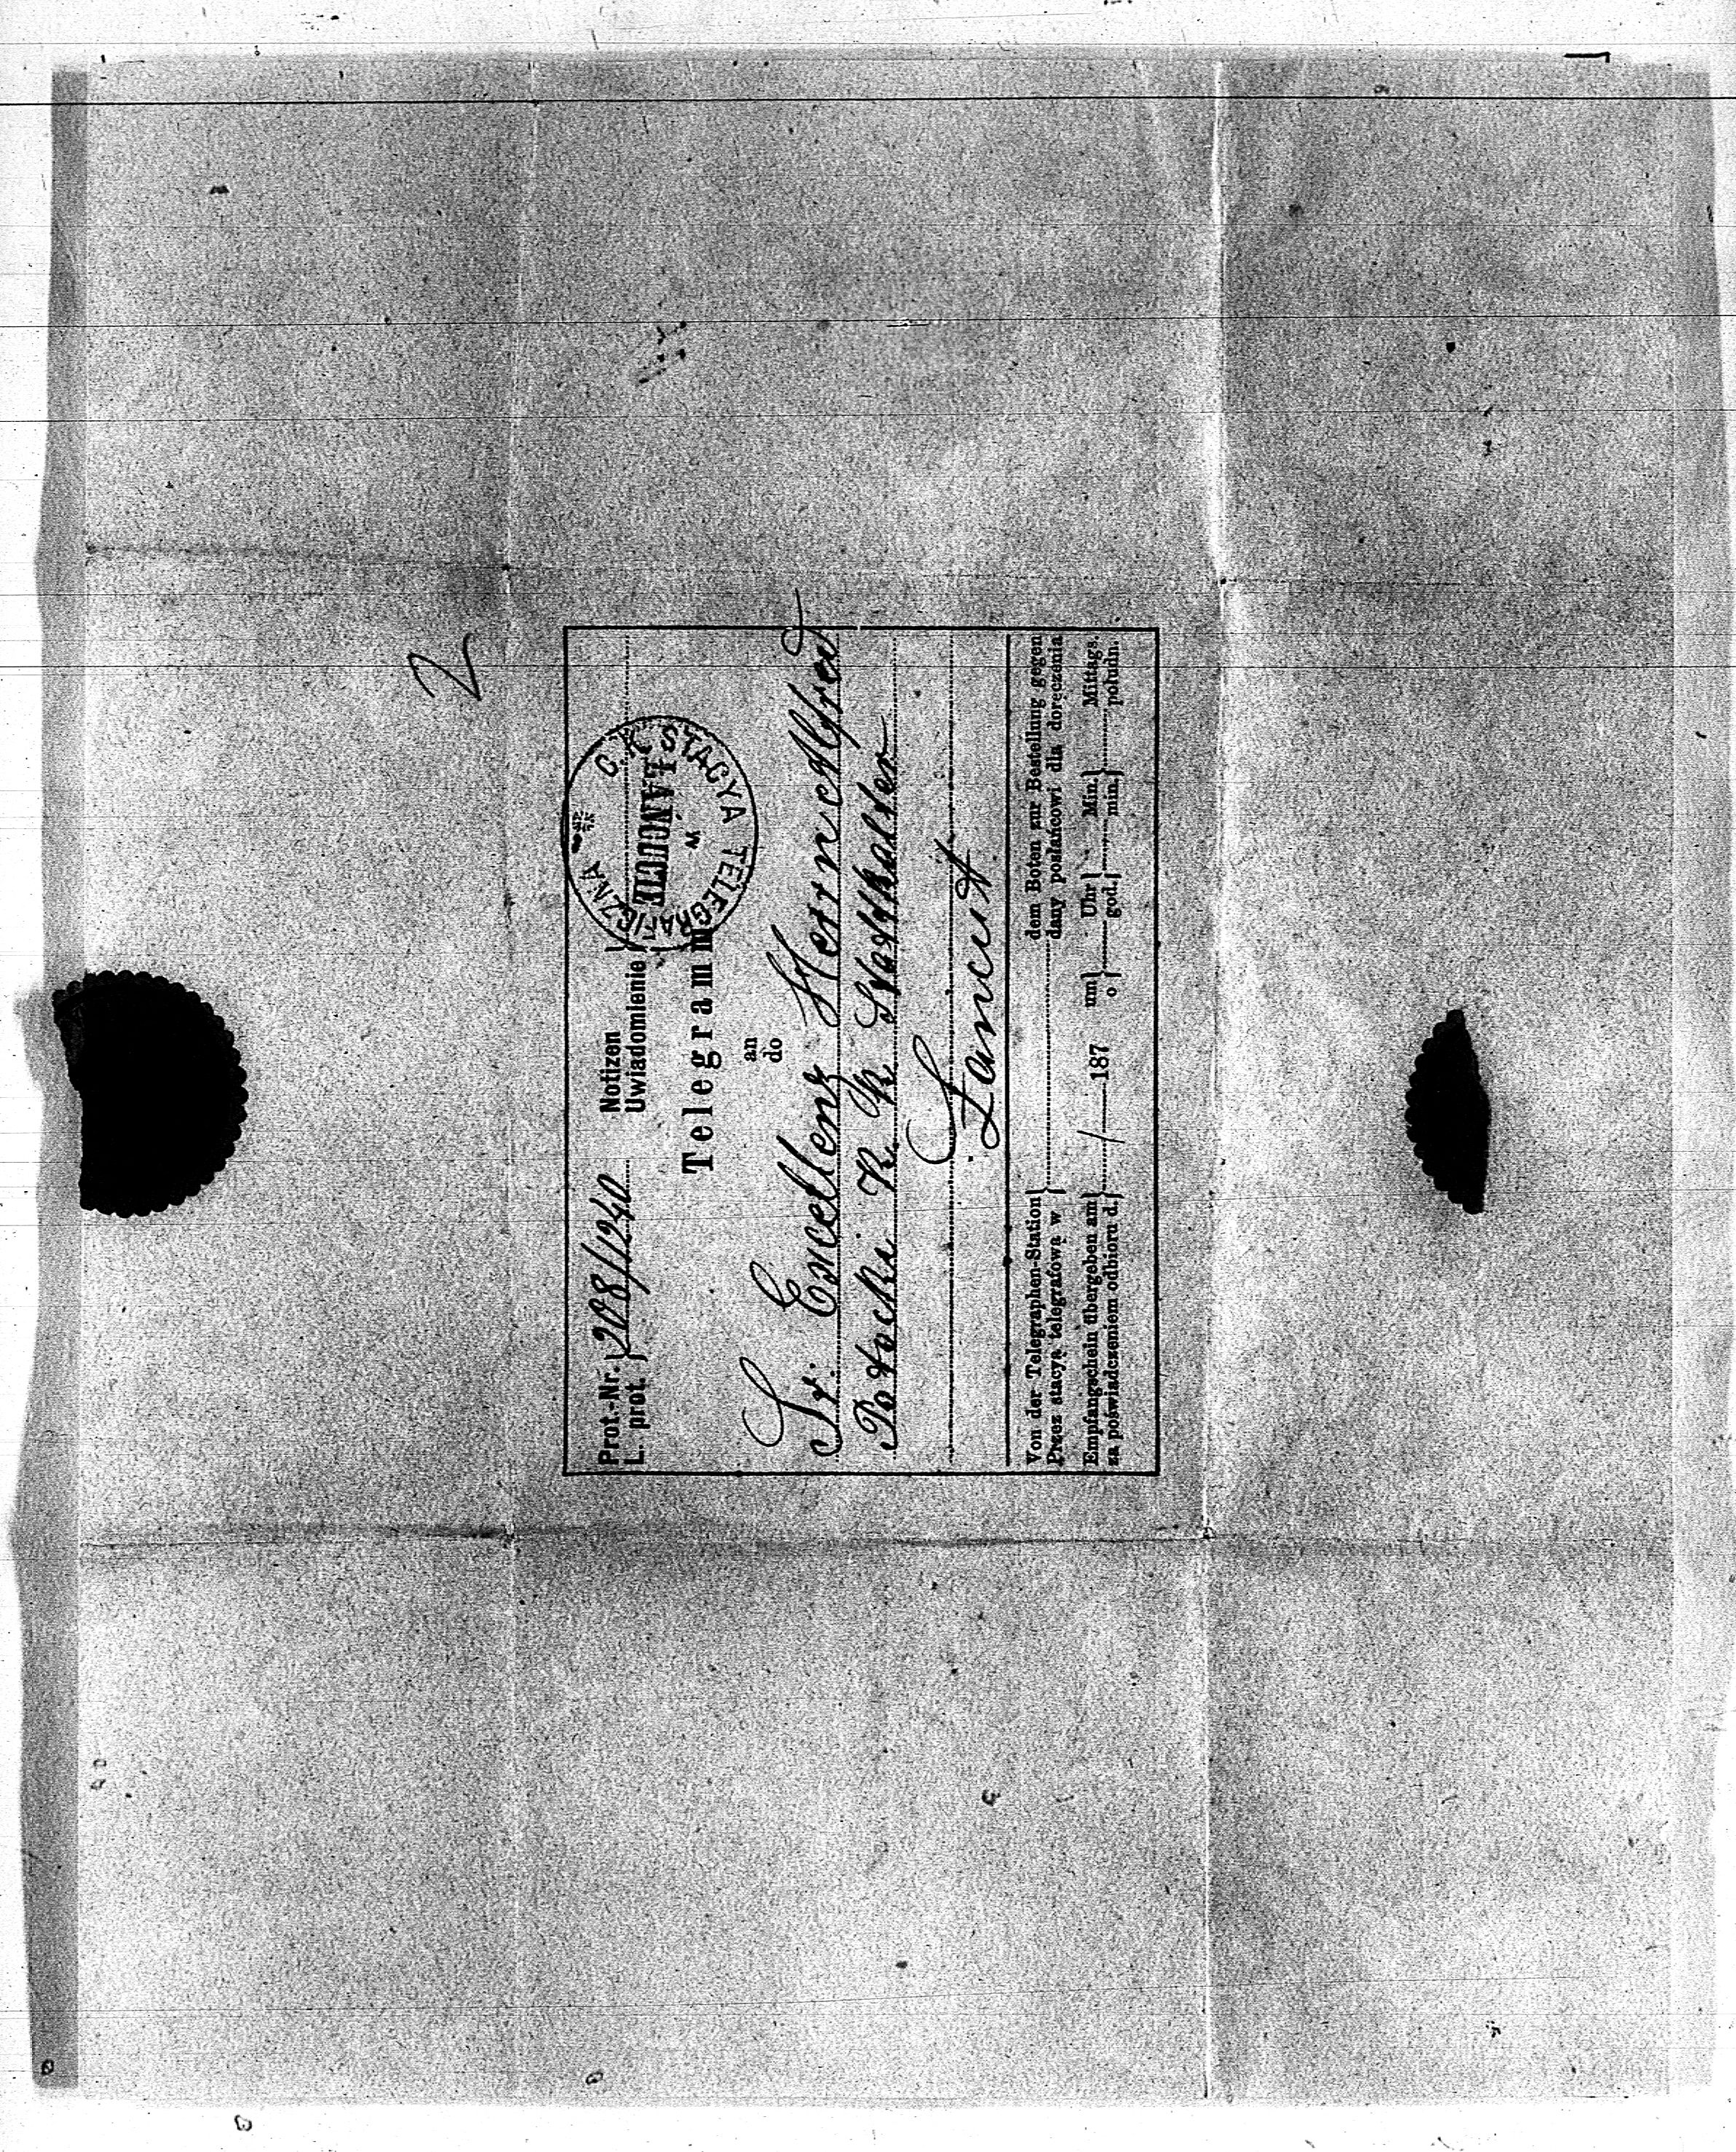 2
Prot.-Nr. } 208/1240 Notizen }
L. prot. } Uwiadomienie }
C. K. STACYA TELEGRAFICZNA
w
ŁAŃCUCIE
Telegramm
an
do
Sr. Excellenz Herrn Alfred
Potocki K K Statthalter
Lancut
Von der Telegraphen-Station } dem Boten zur Bestellung gegen
Przez stacyą telegrafową w } dany posłańcowi dla doręczenia
Empfangschein übergeben am } / 187 um } Uhr } Min. } Mittags.
za poświadczeniem odbioru d. } o } god. } min. } połudn.